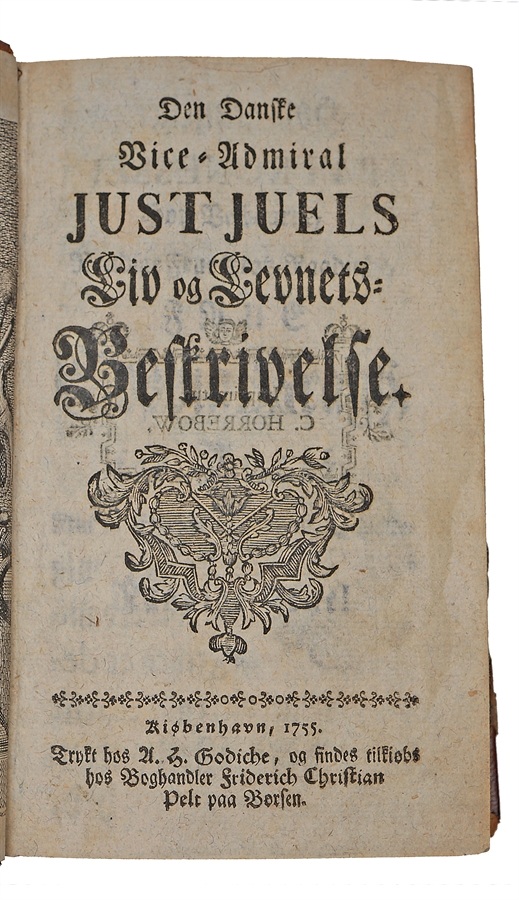 Den Danske
Vice-Admiral
JUST JUELS
Liv og Levnets-
Beskrivelse.
C. HORREBOW,
Kiøbenhavn, 1755.
Trykt hos A. H. Godiche, og findes tilkiøbs
hos Boghandler Friderich Christian
Pelt paa Børsen.